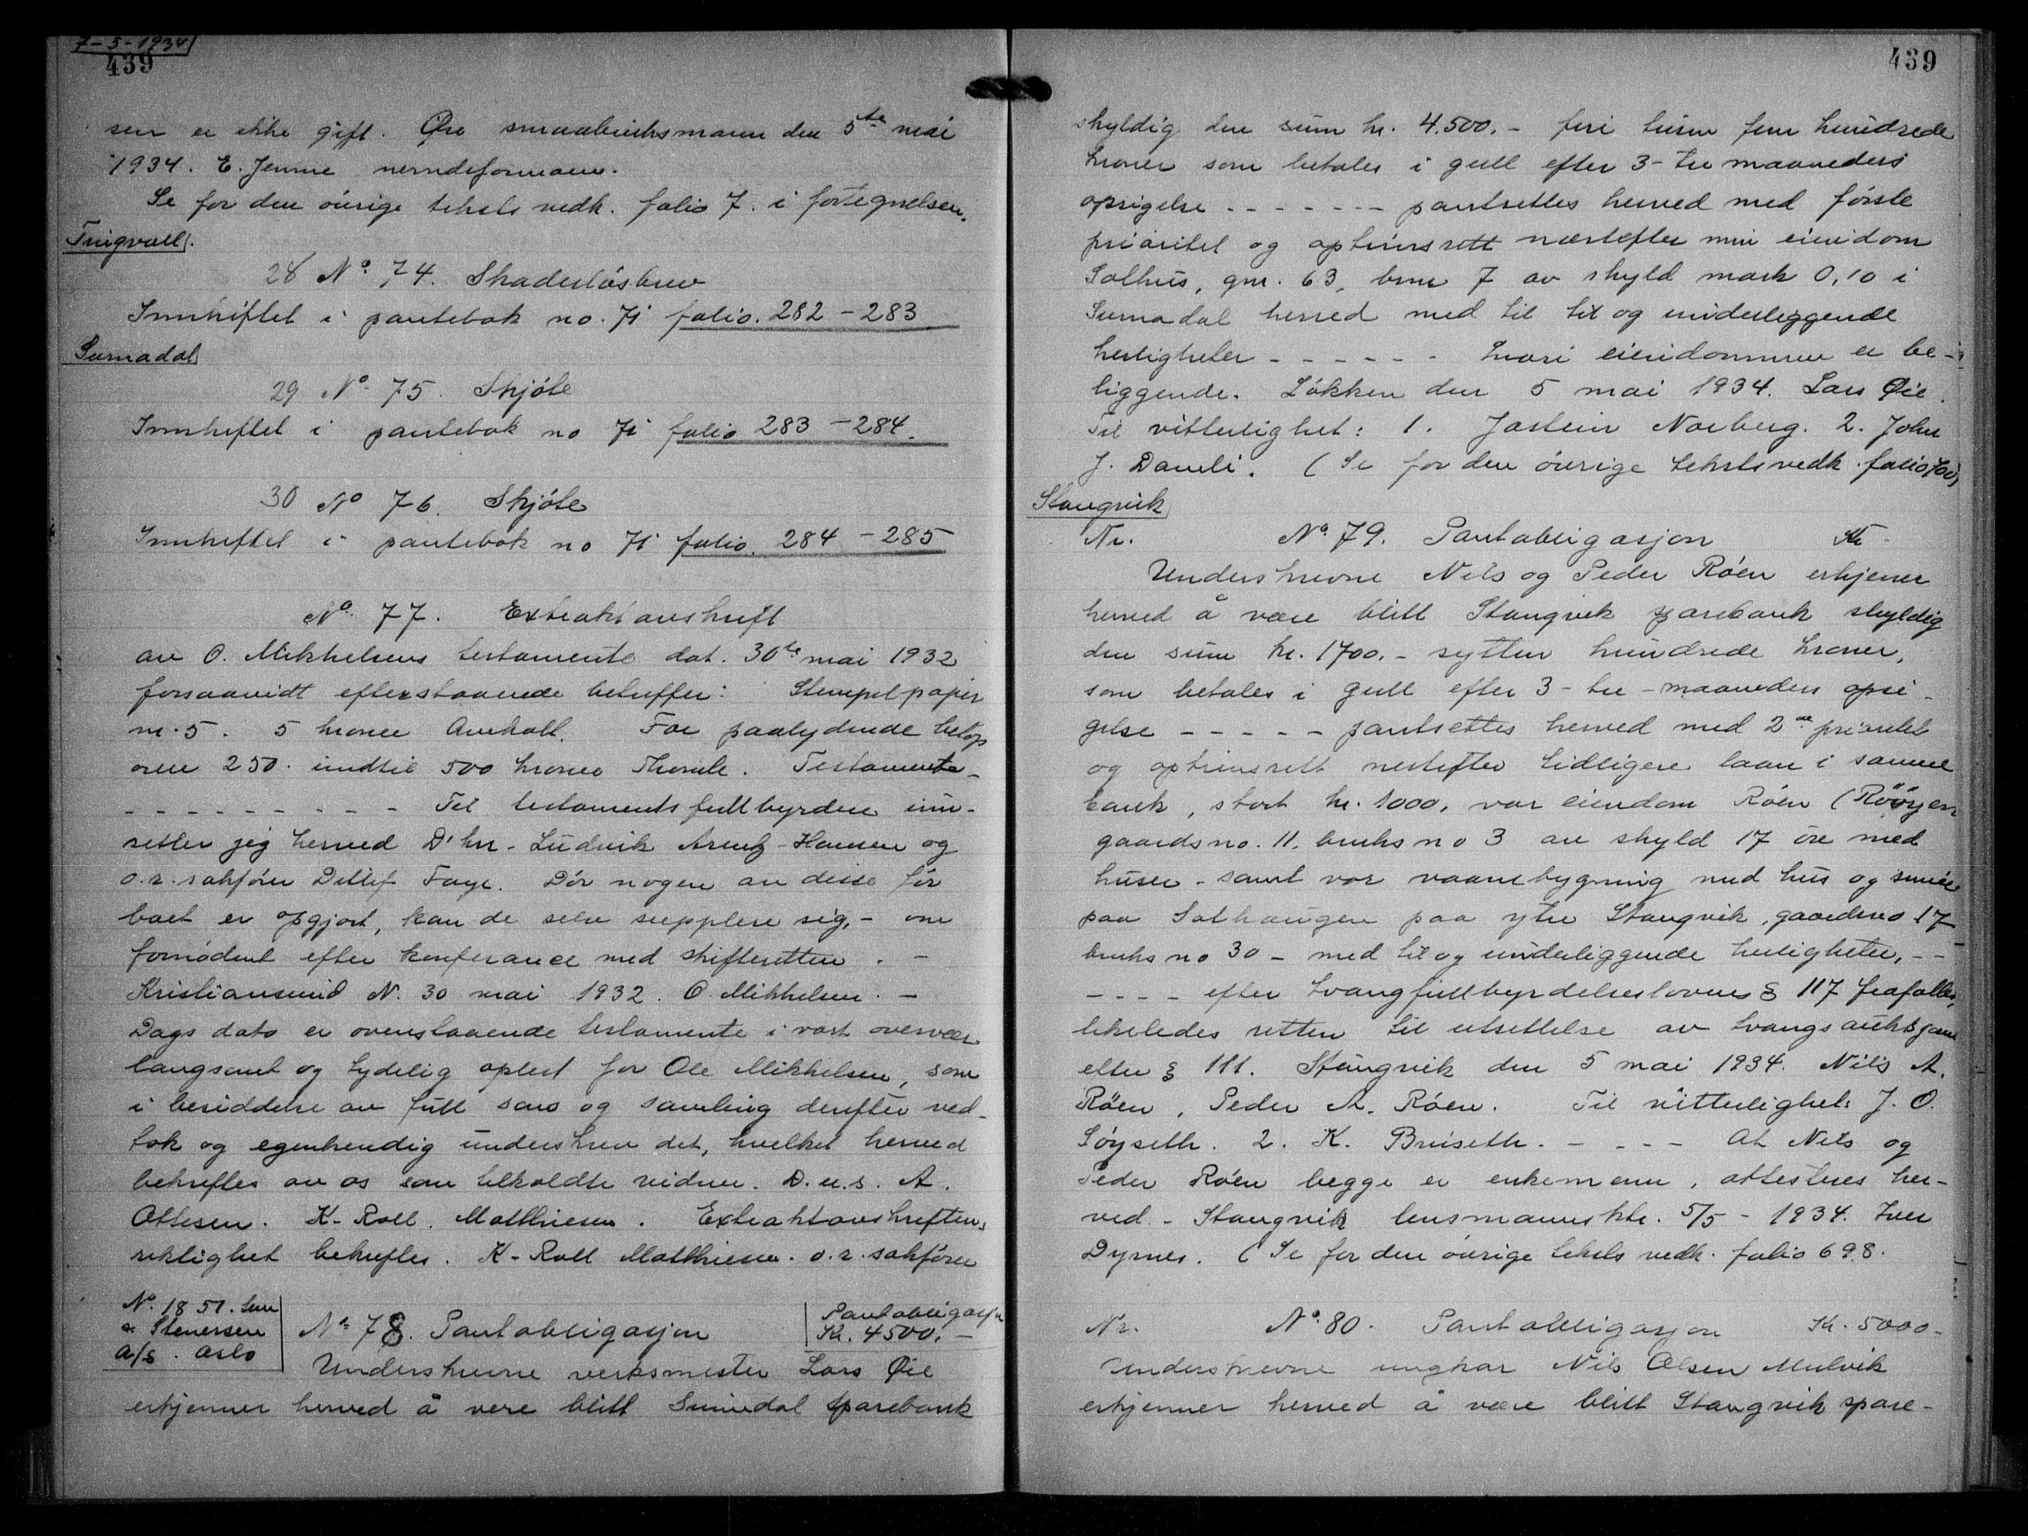 7-5-1934
439
sen er ikke gift. Øre smaabruksmann den 5te mai
1934. E. Jenne nemdeformann.
Se for den øvrige teksts vedk. folio 7. i fortegnelsen.
Tingvoll.
28 No 74. Skadesløsbrev
Innheftet i pantebok no. 71 folio. 282 - 283
Surnadal
29 No 75. Skjøte
Innheftet i pantebok no 71 folio 283 - 284.
30 No 76. Skjøte
Innheftet i pantebok no 71 folio. 284 - 285
No 77. Extraktavskrift
av O. Mikkelsens testamente dat. 30te mai 1932
forsaavidt efterstaaende betreffer: Stempelpapir
nr. 5. 5 kroner Overhall. For paalydende beløp
over 250. indtil 500 kroner Thomle. Testamente
- - - - - - - - - Til testamentsfullbyrdere inn-
setter jeg herved D'hr. Ludvik Arentz-Hansen og
o.r.sakfører Detlef Faye. Dør nogen av disse før
boet er opgjort, kan de selv supplere sig, - om
fornødent efter konferance med skifteretten. -
Kristiansund N. 30 mai 1932. O. Mikkelsen. -
Dags dato er ovenstaaende testamente i vort overvær
langsomt og tydelig oplest for Ole Mikkelsen, som
i besiddelse av full sans og samling derefter ved-
tok og egenhendig underskrev det, hvilket herved
bekreftes av os som tilkaldte vidner. D.u.s. A.
Ottesen. K-Roll. Matthiesen. Extraktavskriftens
riktighet bekreftes. K-Roll Matthiesen. o.r.sakfører
N. 1851. Sem
& Stenersen
A/S. Oslo
No 78. Pantobligasjon
Pantobligasjon
Kr. 4500. -
Underskrevne verksmester Lars Øie
erkjenner herved å være blitt Surnadal sparebank
439
skyldig den sum kr. 4.500. - firi tusen fem hundrede
kroner som betales i gull efter 3 - tre maaneders
opsigelse - - - - - - - pantsettes herved med første
prioritet og optrinsrett næstefter min eiendom
Solhus, gnr. 63, bnr 7 av skyld mark 0,10 i
Surnadal herred med til til og underliggende
herligheter - - - - - - hvori eiendommen er be-
liggende. Løkken den 5 mai 1934. Lars Øie.
Til vitterlighet: 1. Jostein Norberg. 2. John
J. Damli. (Se for den øvrige tekstsvedk. folio 700)
Stangvik
Nr. No 79. Pantobligasjon Kr.
Underskrevne Nils og Peder Røen erkjener
herved å være blitt Stangvik sparebank skyldig
den sum kr. 1700. - sytten hundrede kroner,
som betales i gull efter 3 - tre - maaneders opsi-
gelse - - - - - pantsettes herved med 2en prioritet
og optrinsrett nestefter tidligere laan i samme
bank, stort kr. 1000, vor eiendom Røen (Röøyen
gaardsno. 11. bruksno 3 av skyld 17 øre med
huser - samt vor vaanebygning med hus og smie
paa Solhaugen paa ytre Stangvik, gaardsno 17
bruks no 30 - med til og underliggende herligheter, - -
- - - - efter tvangfullbyrdelseslovens § 117 frafalles,
likeledes retten til utsettelse av tvangsauksjonen
efter § 111. Stangvik den 5 mai 1934. Nils A.
Røen, Peder A. Røen. Til vitterlighet: J. O.
Søyseth. 2. K. Bruseth. - - - - At Nils og
Peder Røen begge er enkemenn, attesteres her-
ved. - Stangvik lensmannsktr. 5/5 - 1934. Iver
Dyrnes. (Se for den øvrige teksts vedk. folio 698.
Nr. No 80. Pantobligasjon Kr. 5000.
Underskrevne ungkar Nils Olsen Mulvik
erkjenner herved å være blitt Stangvik spare-